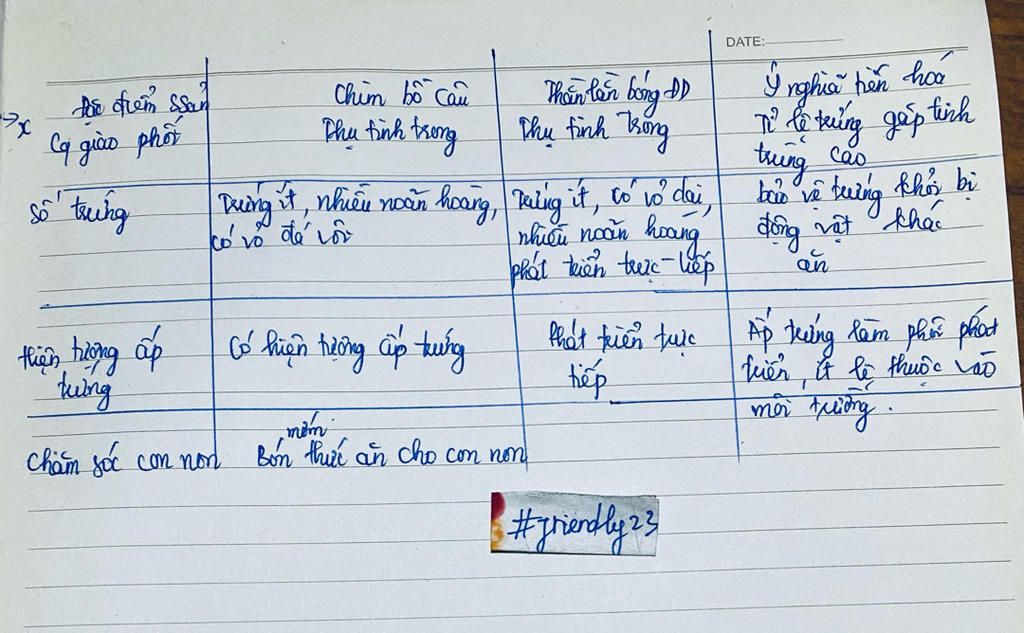 DATE:
→ x Đặc điểm SSản
Cq giao phối
Chim bồ câu
Thụ tinh trong
Thằn lằn bóng ĐD
Thụ tinh trong
Ý nghĩa tiến hoá
Tỉ lệ trứng gặp tinh
trùng cao
Số trứng
Trứng ít, nhiều noãn hoàng,
có vỏ đá vôi
Trứng ít, có vỏ dai,
nhiều noãn hoàng
phát triển trực tiếp
bảo vệ trứng khỏi bị
động vật khác
ăn
Hiện tượng ấp
trứng
Có hiện tượng ấp trứng
Phát triển trực
tiếp
Ấp trứng làm phôi phát
triển, ít lệ thuộc vào
môi trường.
Chăm sóc con non
mớm
Bón thức ăn cho con non
#friendly23